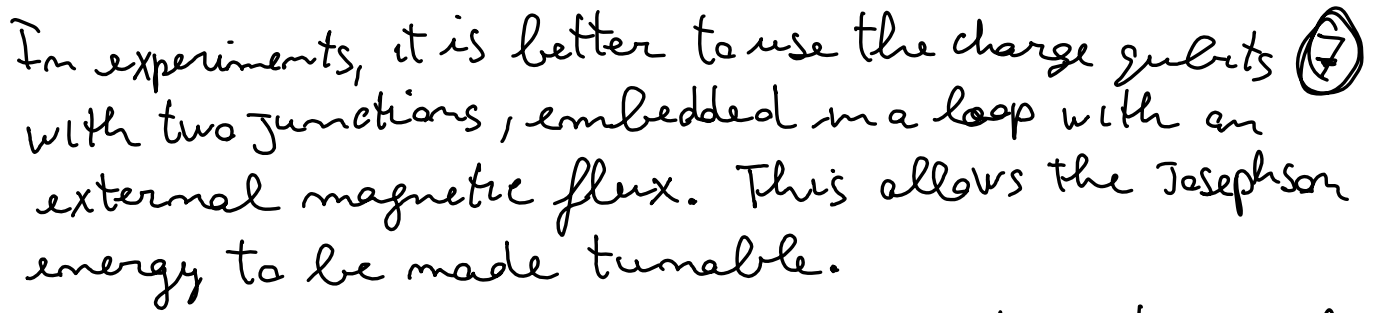 In experiments, it is better to use the charge qubits 7
with two junctions, embedded in a loop with an
external magnetic flux. This allows the Josephson
energy to be made tunable.